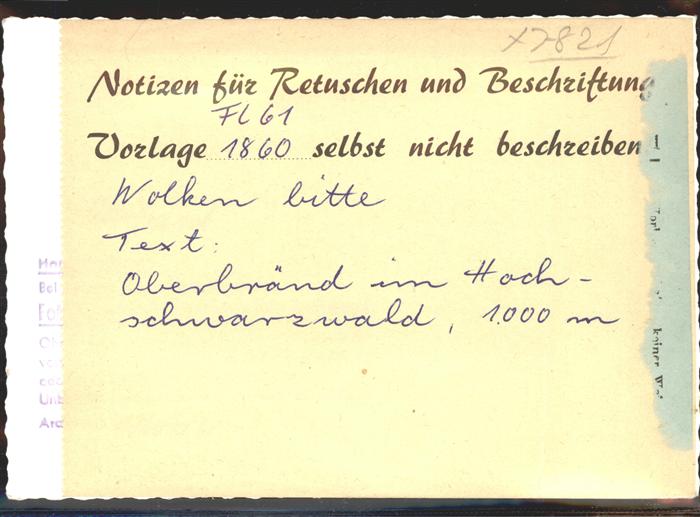 x7821
Notizen für Retuschen und Beschriftung
FL61
Vorlage 1860 selbst nicht beschreiben!
Wolken bitte
Text:
Oberbränd im Hoch-
schwarzwald, 1.000 m
keiner